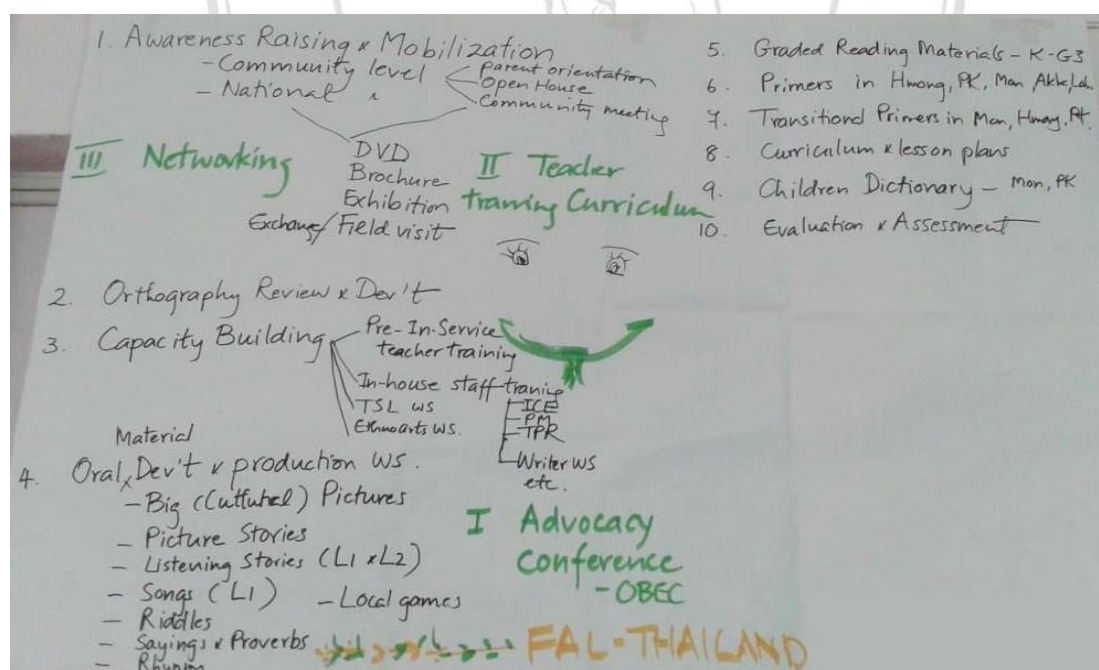 1. Awareness Raising & Mobilization
- Community level
- National "
Parent orientation
Open House
Community meeting
DVD
Brochure
Exhibition
Exchange/Field visit
III Networking
II Teacher
Training Curriculum
2. Orthography Review & Dev't
3. Capacity Building
Pre-In-Service
teacher training
In-house staff traning
TSL WS
Ethnoarts WS.
ICE
PM
TPR
Writer WS
etc.
Material
4. Oral, Dev't & production WS.
- Big (Cultural) Pictures
- Picture Stories
- Listening Stories (L1 & L2)
- Songs (L1) - Local games
- Riddles
- Sayings & Proverbs
I Advocacy
Conference
- OBEC
FAL-THAILAND
5. Graded Reading Materials - K-G3
6. Primers in Hmong, PK, Mon
7. Transitional Primers in Mon, Hmong,
8. Curriculum & lesson plans
9. Children Dictionary - Mon, PK
10. Evaluation & Assessment